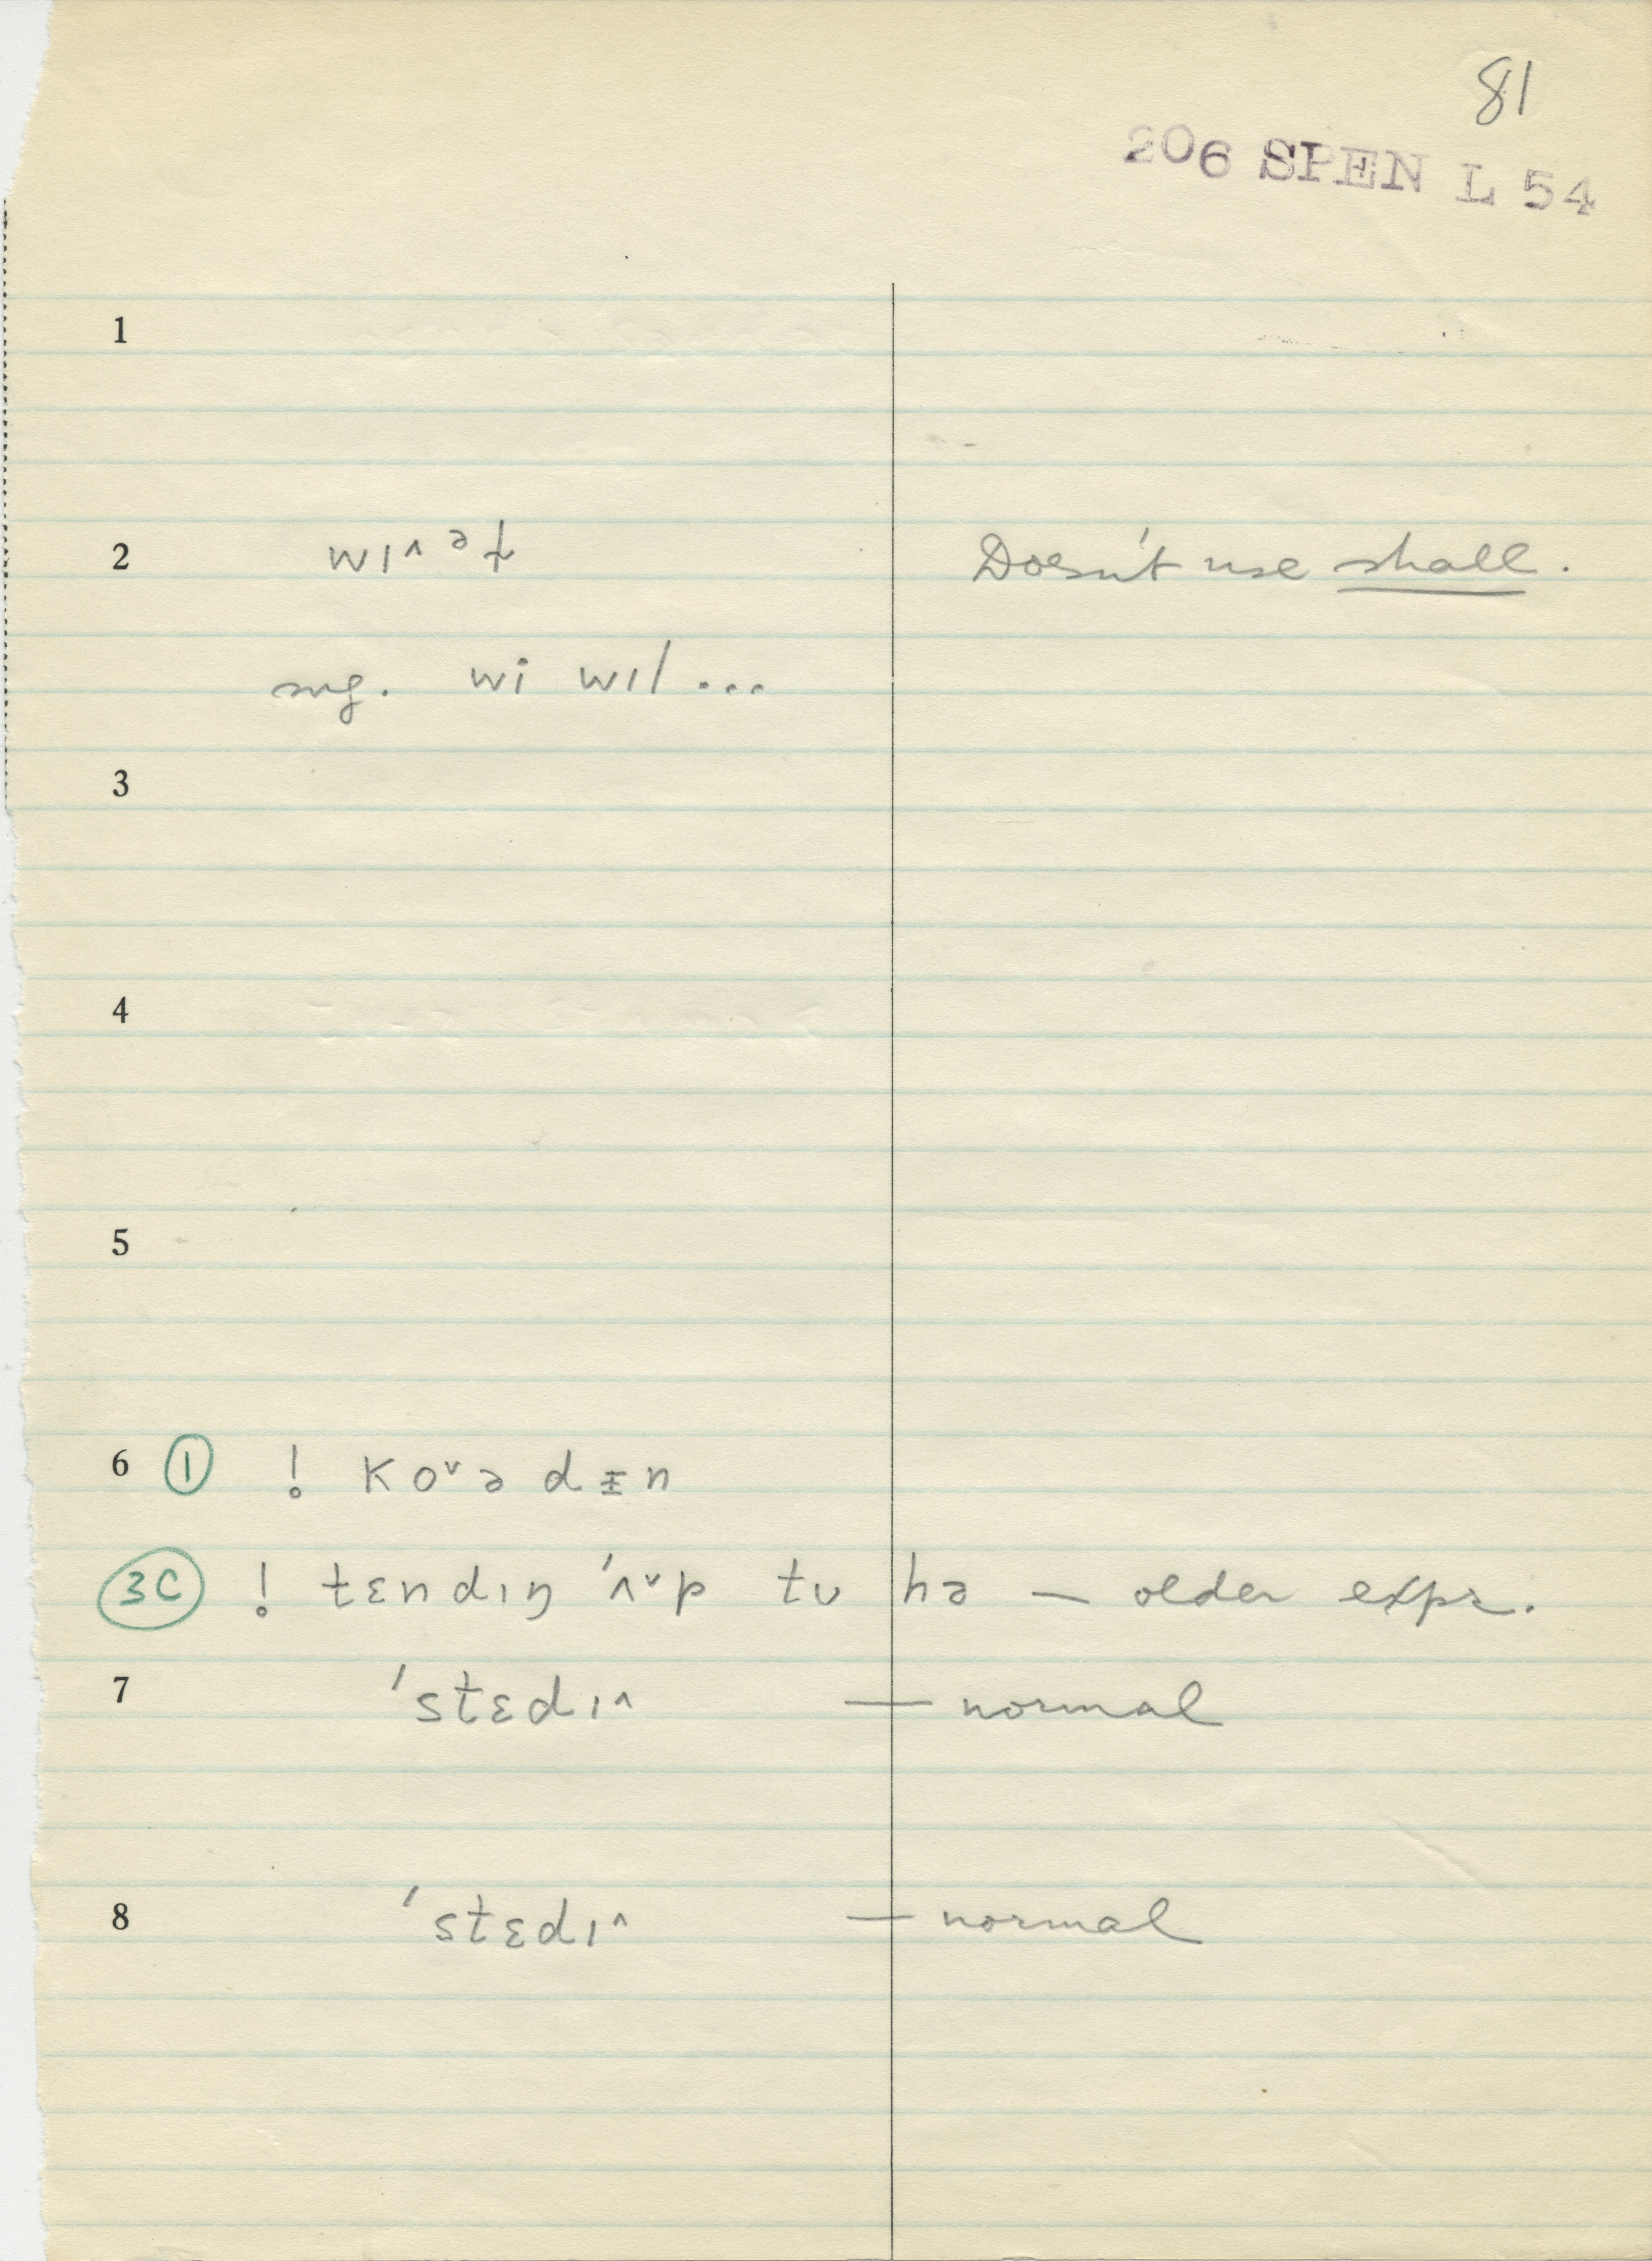 81
206 SPEN L 54
1
2 wɪ^ ᵊɫ Doesn't use shall.
sug. wi wɪl ...
3
4
5
6 ① ! koᵛə dᵻn
3C ! tɛndɪŋ 'ʌᵛp tʊ hə — older expr.
7 'stɛdɪ^ — normal
8 'stɛdɪ^ — normal